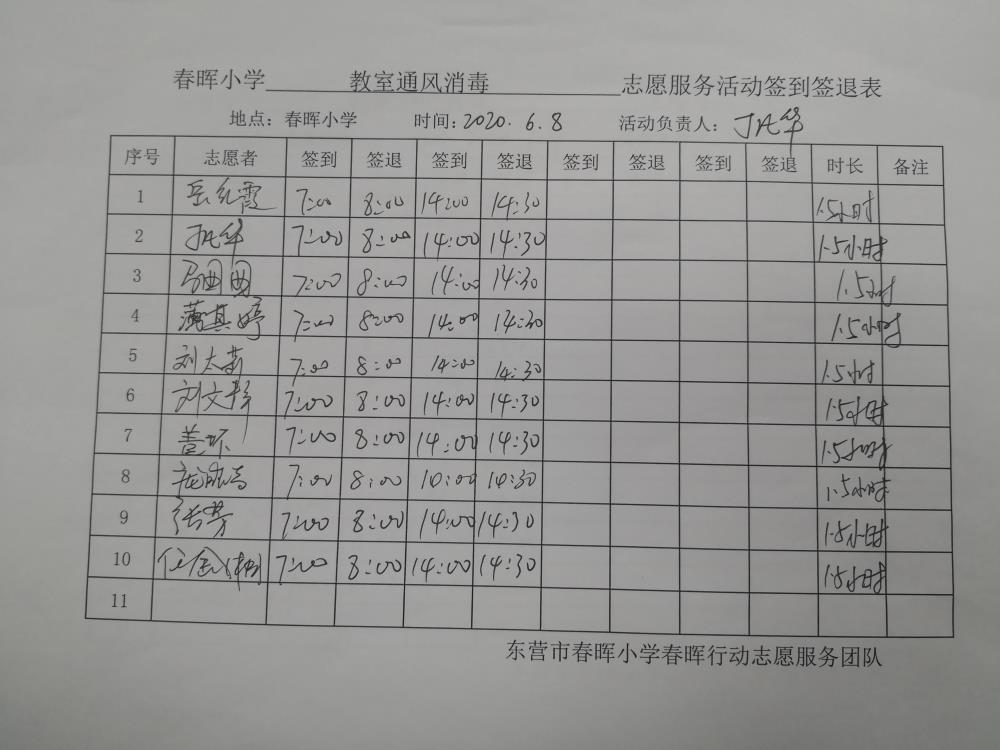 春晖小学 教室通风消毒 志愿服务活动签到签退表
地点：春晖小学 时间：2020.6.8 活动负责人：
序号 志愿者 签到 签退 签到 签退 签到 签退 签到 签退 时长 备注
1 7:00 8:00 14:00 14:30 1.5小时
2 7:00 8:00 14:00 14:30 1.5小时
3 7:00 8:00 14:00 14:30 1.5小时
4 7:00 8:00 14:00 14:30 1.5小时
5 7:00 8:00 14:00 14:30 1.5小时
6 刘文静 7:00 8:00 14:00 14:30 1.5小时
7 盖环 7:00 8:00 14:00 14:30 1.5小时
8 7:00 8:00 14:30 1.5小时
9 张芳 7:00 8:00 14:00 14:30 1.5小时
10 7:00 8:00 14:00 14:30 1.5小时
11
东营市春晖小学春晖行动志愿服务团队